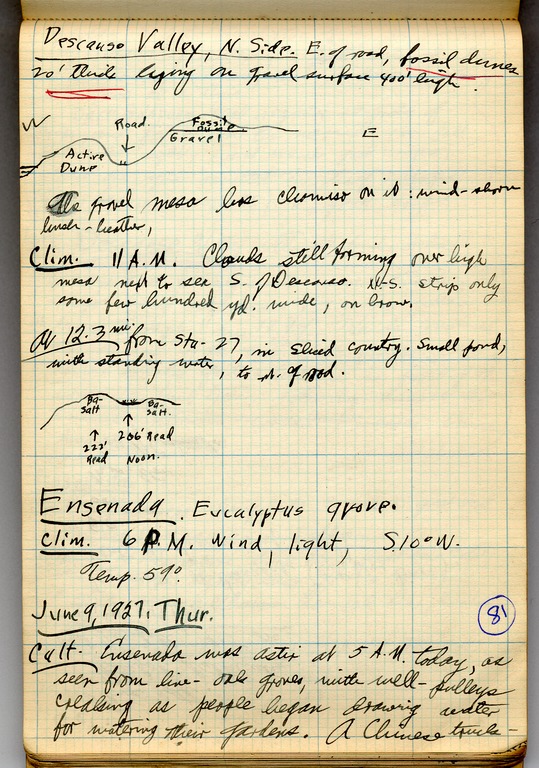 Descanso Valley, N. Side. E. of road, fossil dunes
20' thick laying on gravel surface 400' high.
W
Road.
Fossil
Dune
Gravel
E
Active
Dune
The gravel mesa has Chamiso on it: wind-shorn
brush-heather,
Clim. 11 A.M. Clouds still forming over high
mesa next to sea S. of Descanso. N-S. strip only
some few hundred yd. wide, on brow.
At 12.3 mi from Sta. 27, in sliced country. Small pond,
with standing water, to N. of road.
Ba-
salt
Ba-
salt.
222'
Read
206' Read
Noon.
Ensenada. Eucalyptus grove.
Clim. 6 P.M. Wind, light, S.10°W.
Temp. 59°.
June 9, 1927. Thur.
81
Cult. Ensenada was astir at 5 A.M. today, as
seen from live-oak grove, with well-pulleys
creaking as people began drawing water
for watering their gardens. A Chinese truck-